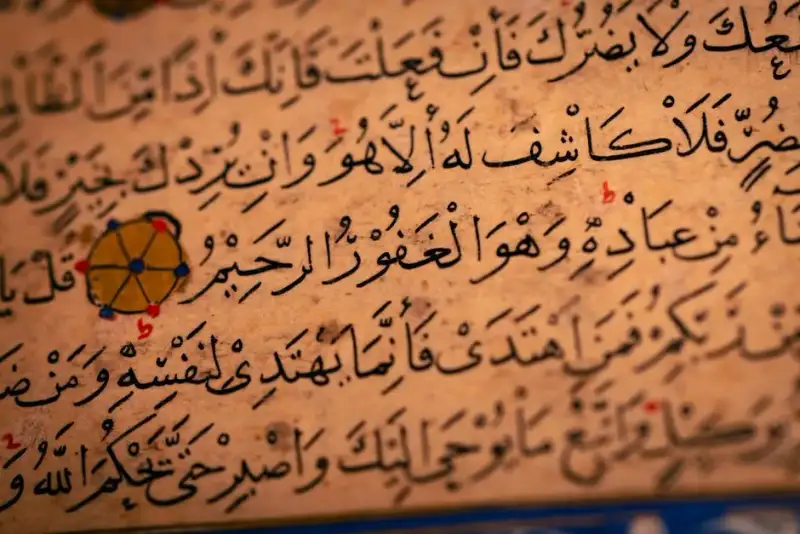 ينفعك وَلَا يَضُرُّكَ فَأِنْ فَعَلْتَ فَاِنَّكَ اِذًا مِنَ الظَّالِمِ
بِضُرٍّ فَلَا كَاشِفَ لَهُ أِلَّا هُوَ وَاِنْ يُرِدْكَ بِخَيْرٍ فَلَا
مِنْ عِبَادِهِ وَهْوَ الْغَفُوْرُ الرَّحِيْمُ قُلْ يَا
مِنْ رَبِّكُمْ فَمَنِ اهْتَدَىْ فَأِنَّمَا يَهْتَدِىْ لِنَفْسِهِ وَمَنْ ضَ
بِوَكِيْلٍ وَاتَّبِعْ مَا يُوْحَىٰ اِلَيْكَ وَاصْبِرْ حَتَّىٰ يَحْكُمَ اللّٰهُ وَ